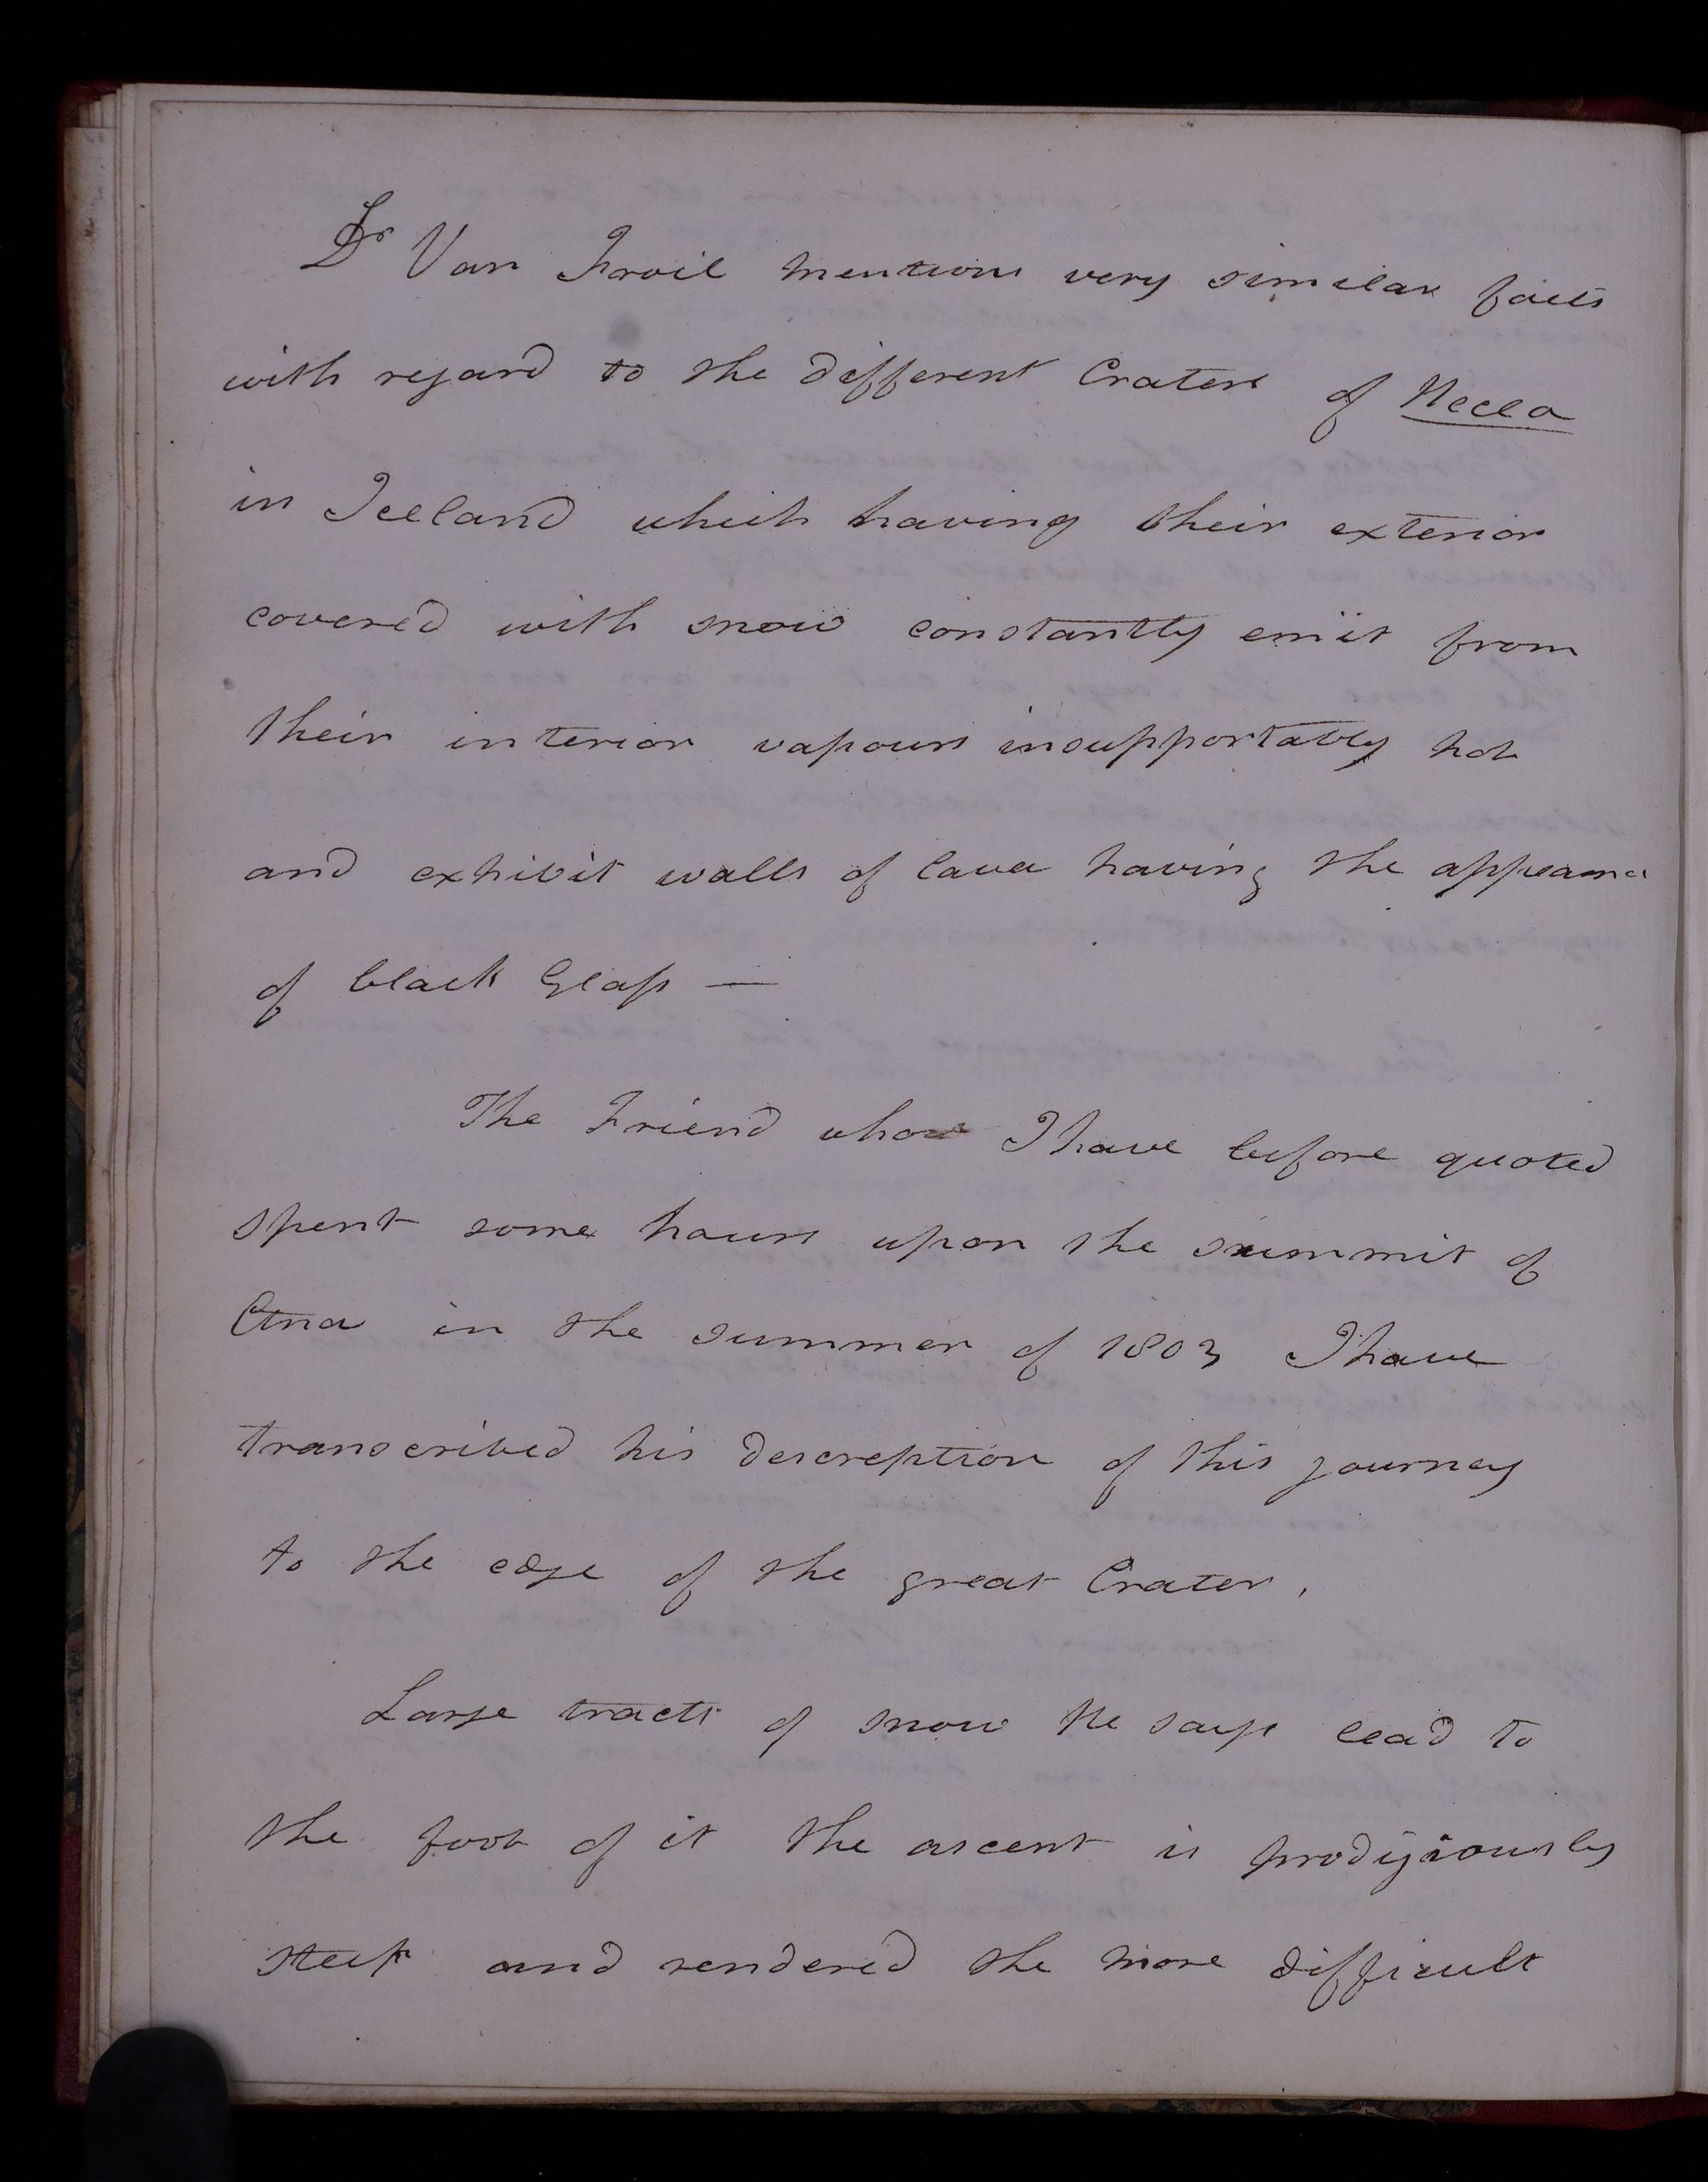 Dr Van Troil mentions very similar facts
with regard to the different Craters of Hecla
in Iceland which having their exterior
covered with snow constantly emit from
their interior vapours insupportably hot
and exhibit walls of lava having the appearance
of black Glass —
The Friend whom I have before quoted
spent some hours upon the summit of
Etna in the summer of 1803 I have
transcribed his description of this journey
to the edge of the great Crater.
Large tracts of snow He says lead to
the foot of it the ascent is prodigiously
steep and rendered the more difficult